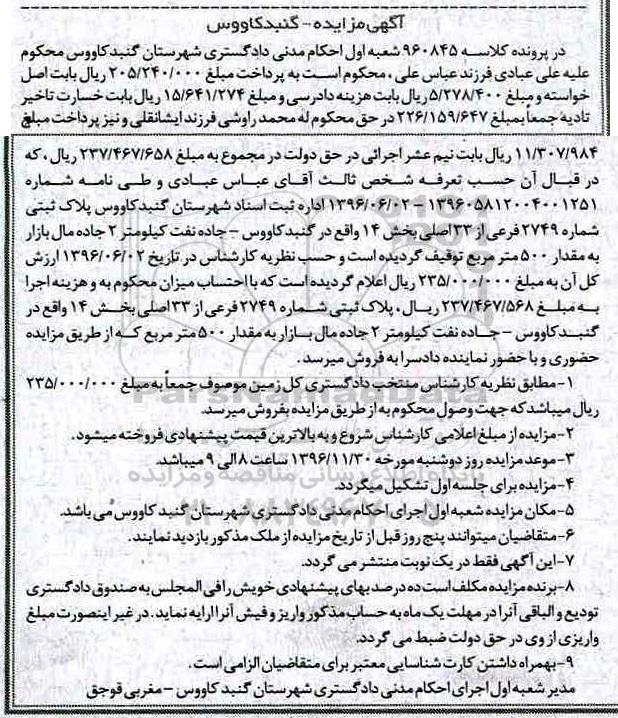 آگهی مزایده - گنبدکاووس
در پرونده کلاسه ۹۶۰۸۴۵ شعبه اول احکام مدنی دادگستری شهرستان گنبدکاووس محکوم
علیه علی عبادی فرزند عباس علی ، محکوم است به پرداخت مبلغ ۲۰۵/۲۴۰/۰۰۰ ریال بابت اصل
خواسته و مبلغ ۵/۲۷۸/۴۰۰ ریال بابت هزینه دادرسی و مبلغ ۱۵/۶۴۱/۲۷۴ ریال بابت خسارت تاخیر
تادیه جمعاً بمبلغ ۲۲۶/۱۵۹/۶۴۷ در حق محکوم له محمد راوشی فرزند ایشانقلی و نیز پرداخت مبلغ
۱۱/۳۰۷/۹۸۴ ریال بابت نیم عشر اجرائی در حق دولت در مجموع به مبلغ ۲۳۷/۴۶۷/۶۵۸ ریال ، که
در قبال آن حسب تعرفه شخص ثالث آقای عباس عبادی و طی نامه شماره
۱۳۹۶۰۵۸۱۲۰۰۴۰۰۱۲۵۱ - ۱۳۹۶/۰۶/۰۲ اداره ثبت اسناد شهرستان گنبدکاووس پلاک ثبتی
شماره ۲۷۴۹ فرعی از ۳۳ اصلی بخش ۱۴ واقع در گنبدکاووس - جاده نفت کیلومتر ۲ جاده مال بازار
به مقدار ۵۰۰ متر مربع توقیف گردیده است و حسب نظریه کارشناس در تاریخ ۱۳۹۶/۰۶/۰۲ ارزش
کل آن به مبلغ ۲۳۵/۰۰۰/۰۰۰ ریال اعلام گردیده است که با احتساب میزان محکوم به و هزینه اجرا
به مبلغ ۲۳۷/۴۶۷/۵۶۸ ریال ، پلاک ثبتی شماره ۲۷۴۹ فرعی از ۳۳ اصلی بخش ۱۴ واقع در
گنبدکاووس - جاده نفت کیلومتر ۲ جاده مال بازار به مقدار ۵۰۰ متر مربع که از طریق مزایده
حضوری و با حضور نماینده دادسرا به فروش میرسد.
۱- مطابق نظریه کارشناس منتخب دادگستری کل زمین موصوف جمعاً به مبلغ ۲۳۵/۰۰۰/۰۰۰
ریال میباشد که جهت وصول محکوم به از طریق مزایده بفروش میرسد.
۲- مزایده از مبلغ اعلامی کارشناس شروع و به بالاترین قیمت پیشنهادی فروخته میشود.
۳- موعد مزایده روز دوشنبه مورخه ۱۳۹۶/۱۱/۳۰ ساعت ۸ الی ۹ میباشد.
۴- مزایده برای جلسه اول تشکیل میگردد.
۵- مکان مزایده شعبه اول اجرای احکام مدنی دادگستری شهرستان گنبد کاووس می باشد.
۶- متقاضیان میتوانند پنج روز قبل از تاریخ مزایده از ملک مذکور بازدید نمایند.
۷- این آگهی فقط در یک نوبت منتشر می گردد.
۸- برنده مزایده مکلف است ده درصد بهای پیشنهادی خویش را فی المجلس به صندوق دادگستری
تودیع و الباقی آنرا در مهلت یک ماه به حساب مذکور واریز و فیش آنرا ارایه نماید. در غیر اینصورت مبلغ
واریزی از وی در حق دولت ضبط می گردد.
۹- بهمراه داشتن کارت شناسایی معتبر برای متقاضیان الزامی است.
مدیر شعبه اول اجرای احکام مدنی دادگستری شهرستان گنبد کاووس - مغربی قوجق
ParsNamadData